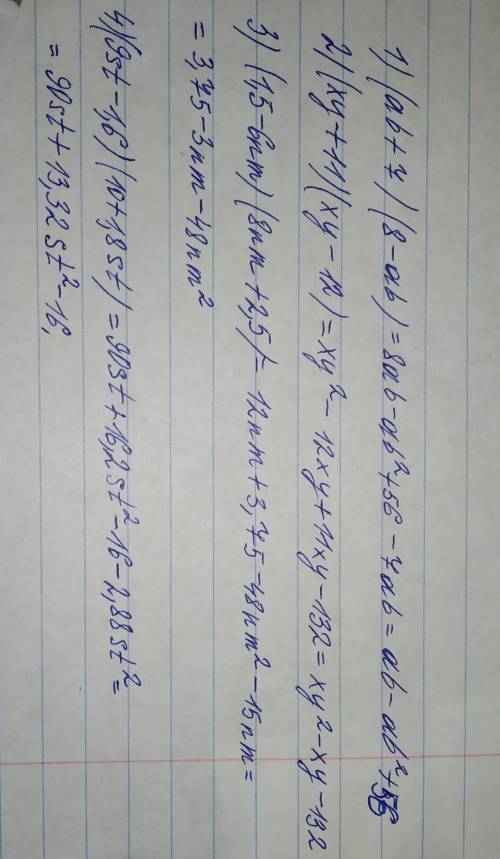 1) (ab + 7) (8 - ab) = 8ab - ab² + 56 - 7ab = ab - ab² + 56
2) (xy + 11) (xy - 12) = xy² - 12xy + 11xy - 132 = xy² - xy - 132
3) (1,5 - 6nm) (8nm + 2,5) = 12nm + 3,75 - 48nm² - 15nm =
= 3,75 - 3nm - 48nm²
4) (9st - 1,6) (10 + 1,8st) = 90st + 16,2st² - 16 - 2,88st² =
= 90st + 13,32st² - 16,